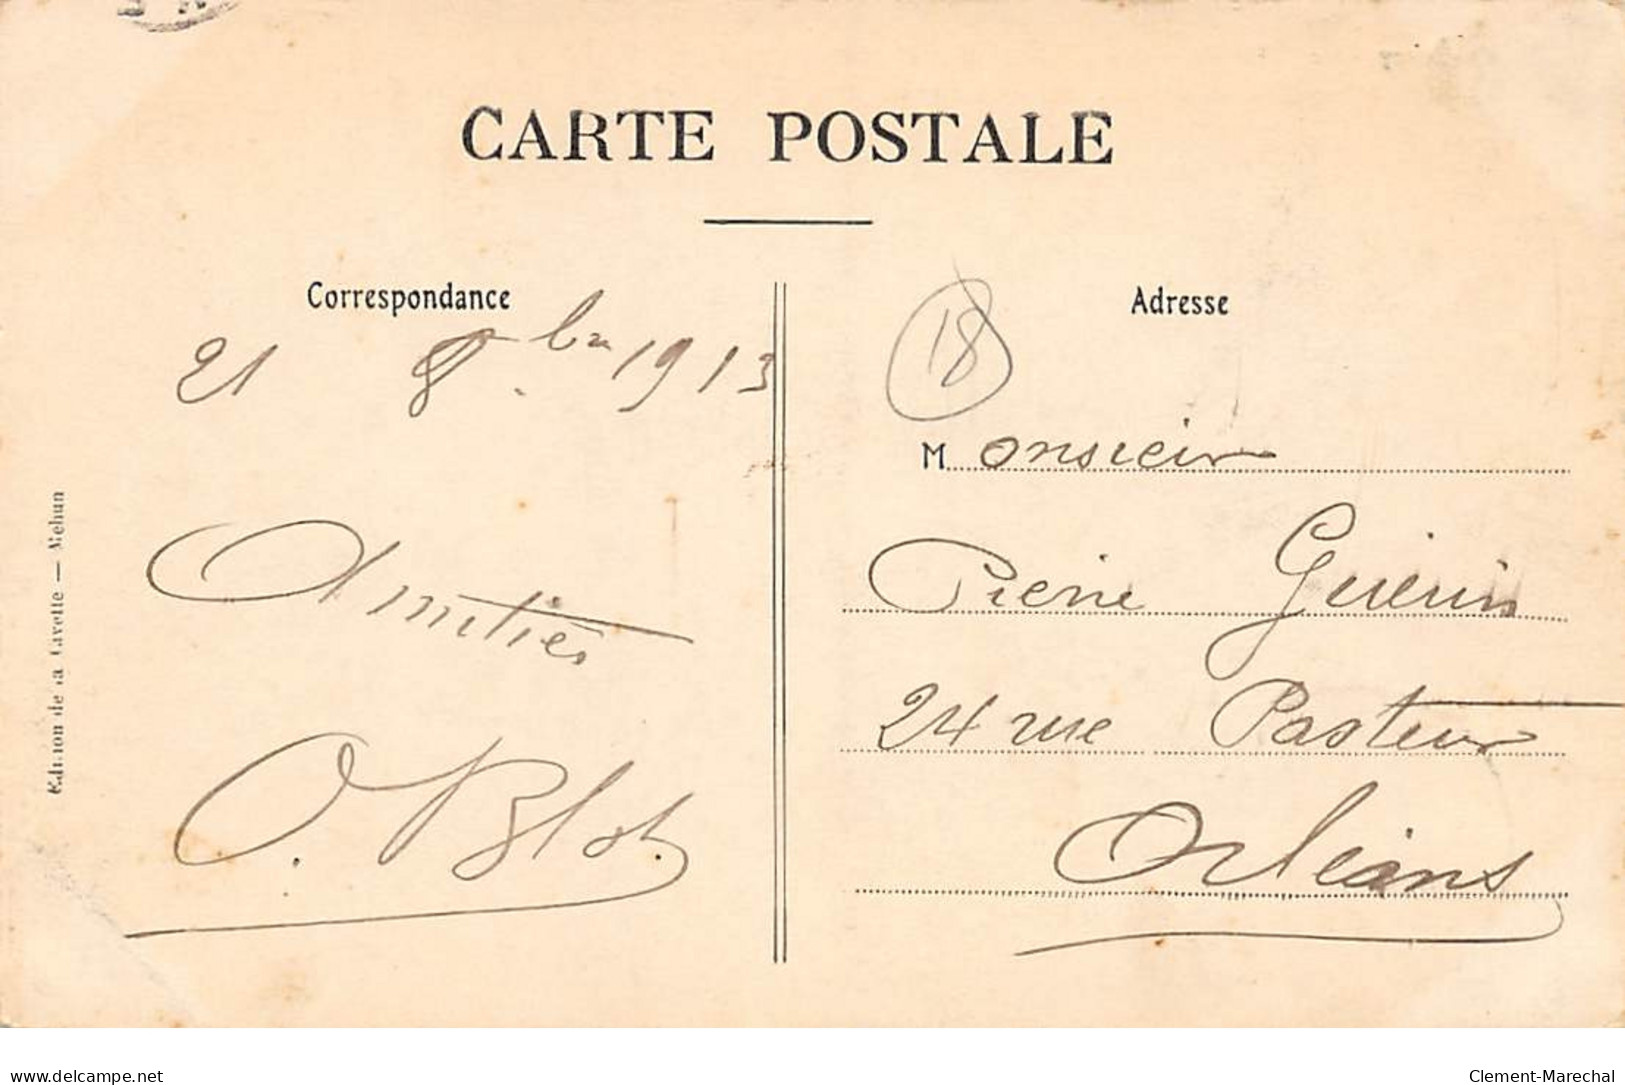 CARTE POSTALE
Correspondance
21 8bre 1913
Amitiés
O. Blot
Edition de la Gavette — Mehun
Adresse
18
Monsieur
Pierre Guérin
24 rue Pasteur
Orléans
www.delcampe.net
Clement-Marechal